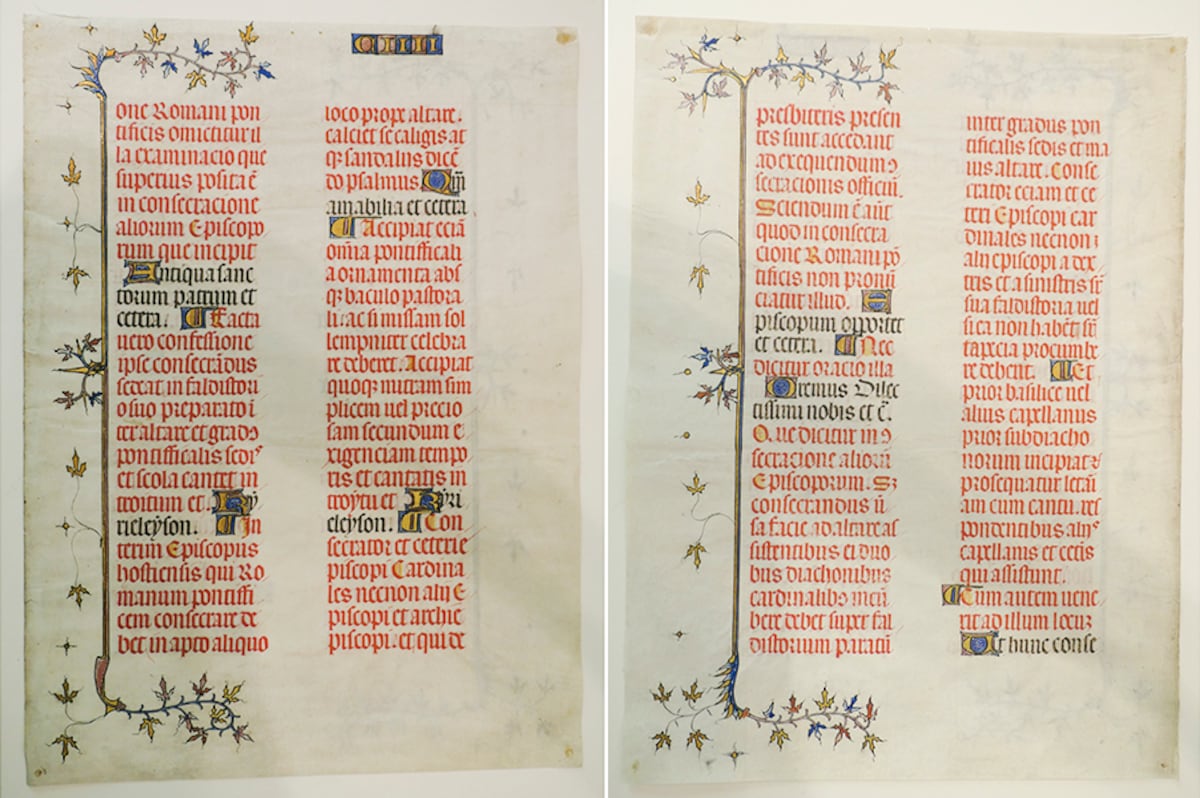 CIIII
one Romani pon
tificis omictitur il
la examinacio que
superius posita ē
in consecracione
aliorum Episcopo
rum que incipit
Antiqua sanc
torum patrum et
cetera. ¶ Facta
uero confessione
ipse consecrādus
sedeat in faldistori
o suo preparato ī
ter altare et gradꝰ
pontifficalis sedis
et scola cantet in
troitum et. Ky
rieleyson. ¶ In
terim Episcopus
hostiensis qui Ro
manum pontiffi
cem consecrare de
bet in apto aliquo
loco prope altare.
calciet se caligis at
qꝫ sandaliis dicē
do psalmus Qm̄
amabilia et cetera
¶ Accipiat eciā
omīa pontifficali
a ornamenta absꝫ
qꝫ baculo pastora
li: ac si missam sol
lempniter celebra
re deberet. Accipiat
quoqꝫ mitram sim
plicem uel precio
sam secundum e
xigenciam tempo
ris et cantatis in
troytu et Kyri
eleyson. ¶ Con
secrator et ceteri e
piscopi Cardina
les necnon alii E
piscopi et archie
piscopi. et qui de
presbiteris presen
tes sunt accedant
ad exequendum ꝯ
secracionis officiū.
Sciendum ē aūt
quod in consecra
cione Romani pō
tificis non pronū
ciatur illud. E
piscopum opportet
et cetera. ¶ Nec
dicitur oracio illa
Oremus Dilec
tissimi nobis et c̄.
Que dicitur in ꝯ
secracione aliorū
Episcoporum. Sꝫ
consecrandus ū
sa facie ad altare as
sistentibus ei duo
bus diachonibus
cardinalibꝫ incū
bere debet super fal
distorium paratū
inter gradus pon
tificalis sedis et ma
ius altare. Conse
crator eciam et ce
teri Episcopi car
dinales necnon ꝫ
alii episcopi a dex
tris et a sinistris sr̄
sua faldistoria uel
si ea non habēt sr̄
tapecia procumbe
re debent. ¶ Et
prior basilice uel
alius capellanus
prior subdiacho
norum incipiat ꝫ
prosequatur letā
am cum cantu. res
pondentibus aliis
capellanis et cetis
qui assistunt.
¶ Cum autem uene
rit ad illum locuꝫ
Ut hunc conse